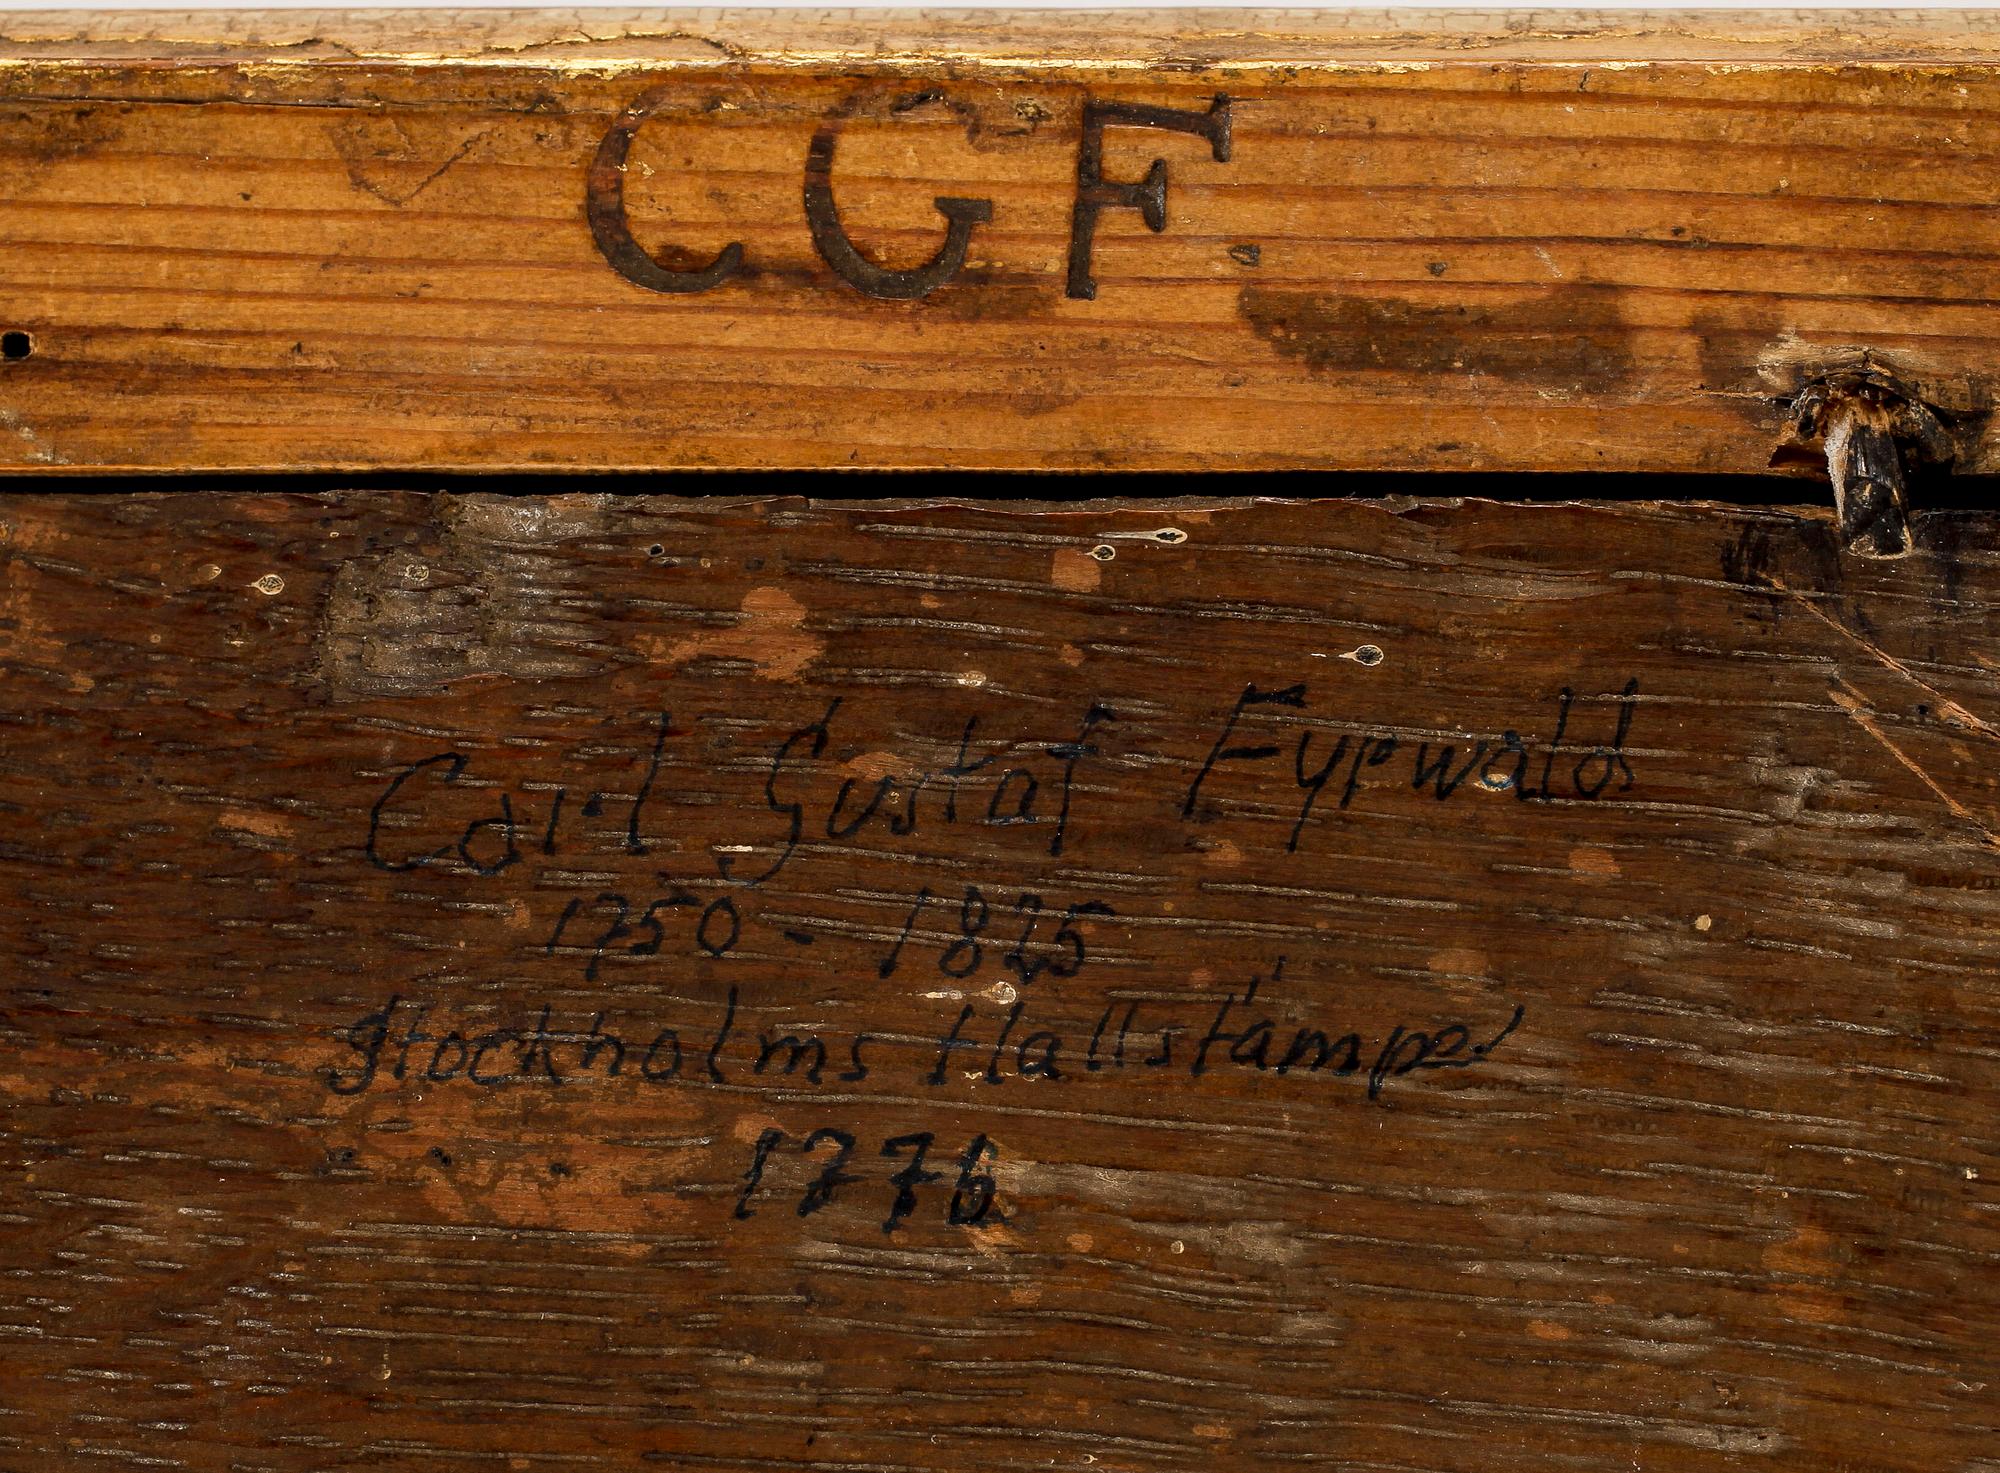 CGF
Carl Gustaf Fyrwald
1750 - 1825
Stockholms Hallstämpel
1776